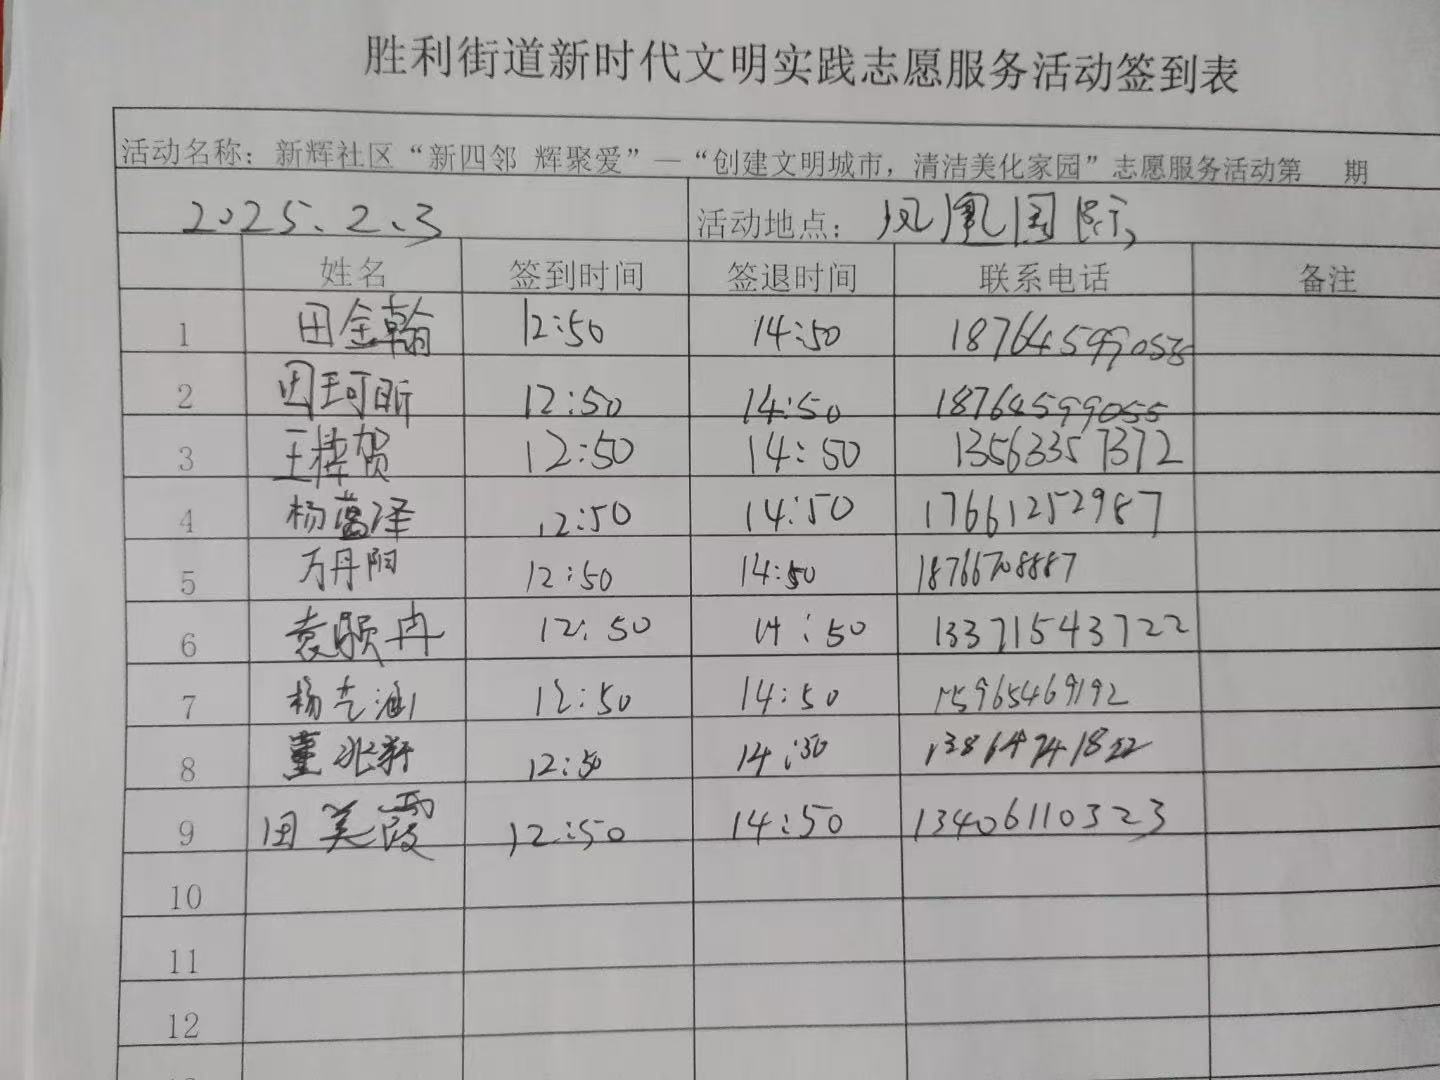 胜利街道新时代文明实践志愿服务活动签到表
活动名称：新辉社区“新四邻 辉聚爱”—“创建文明城市，清洁美化家园”志愿服务活动第 期
2025.2.3 活动地点：凤凰国际
姓名 签到时间 签退时间 联系电话 备注
1 田金翰 12:50 14:50
2 田珂昕 12:50 14:50 18764599055
3 王梓贺 12:50 14:50 13563357372
4 杨菡泽 12:50 14:50 17661252987
5 万丹阳 12:50 14:50 18766708887
6 袁颐冉 12:50 14:50 13371543722
7 杨艺涵 12:50 14:50 15965469192
8 董兆轩 12:50 14:50
9 田美霞 12:50 14:50 13406110323
10
11
12